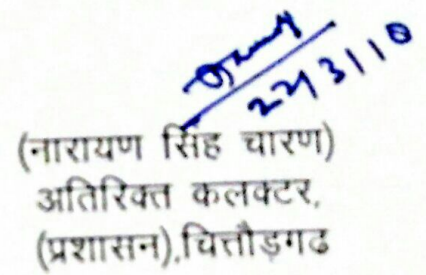 22/3/18
(नारायण सिंह चारण)
अतिरिक्त कलक्टर,
(प्रशासन),चित्तौड़गढ